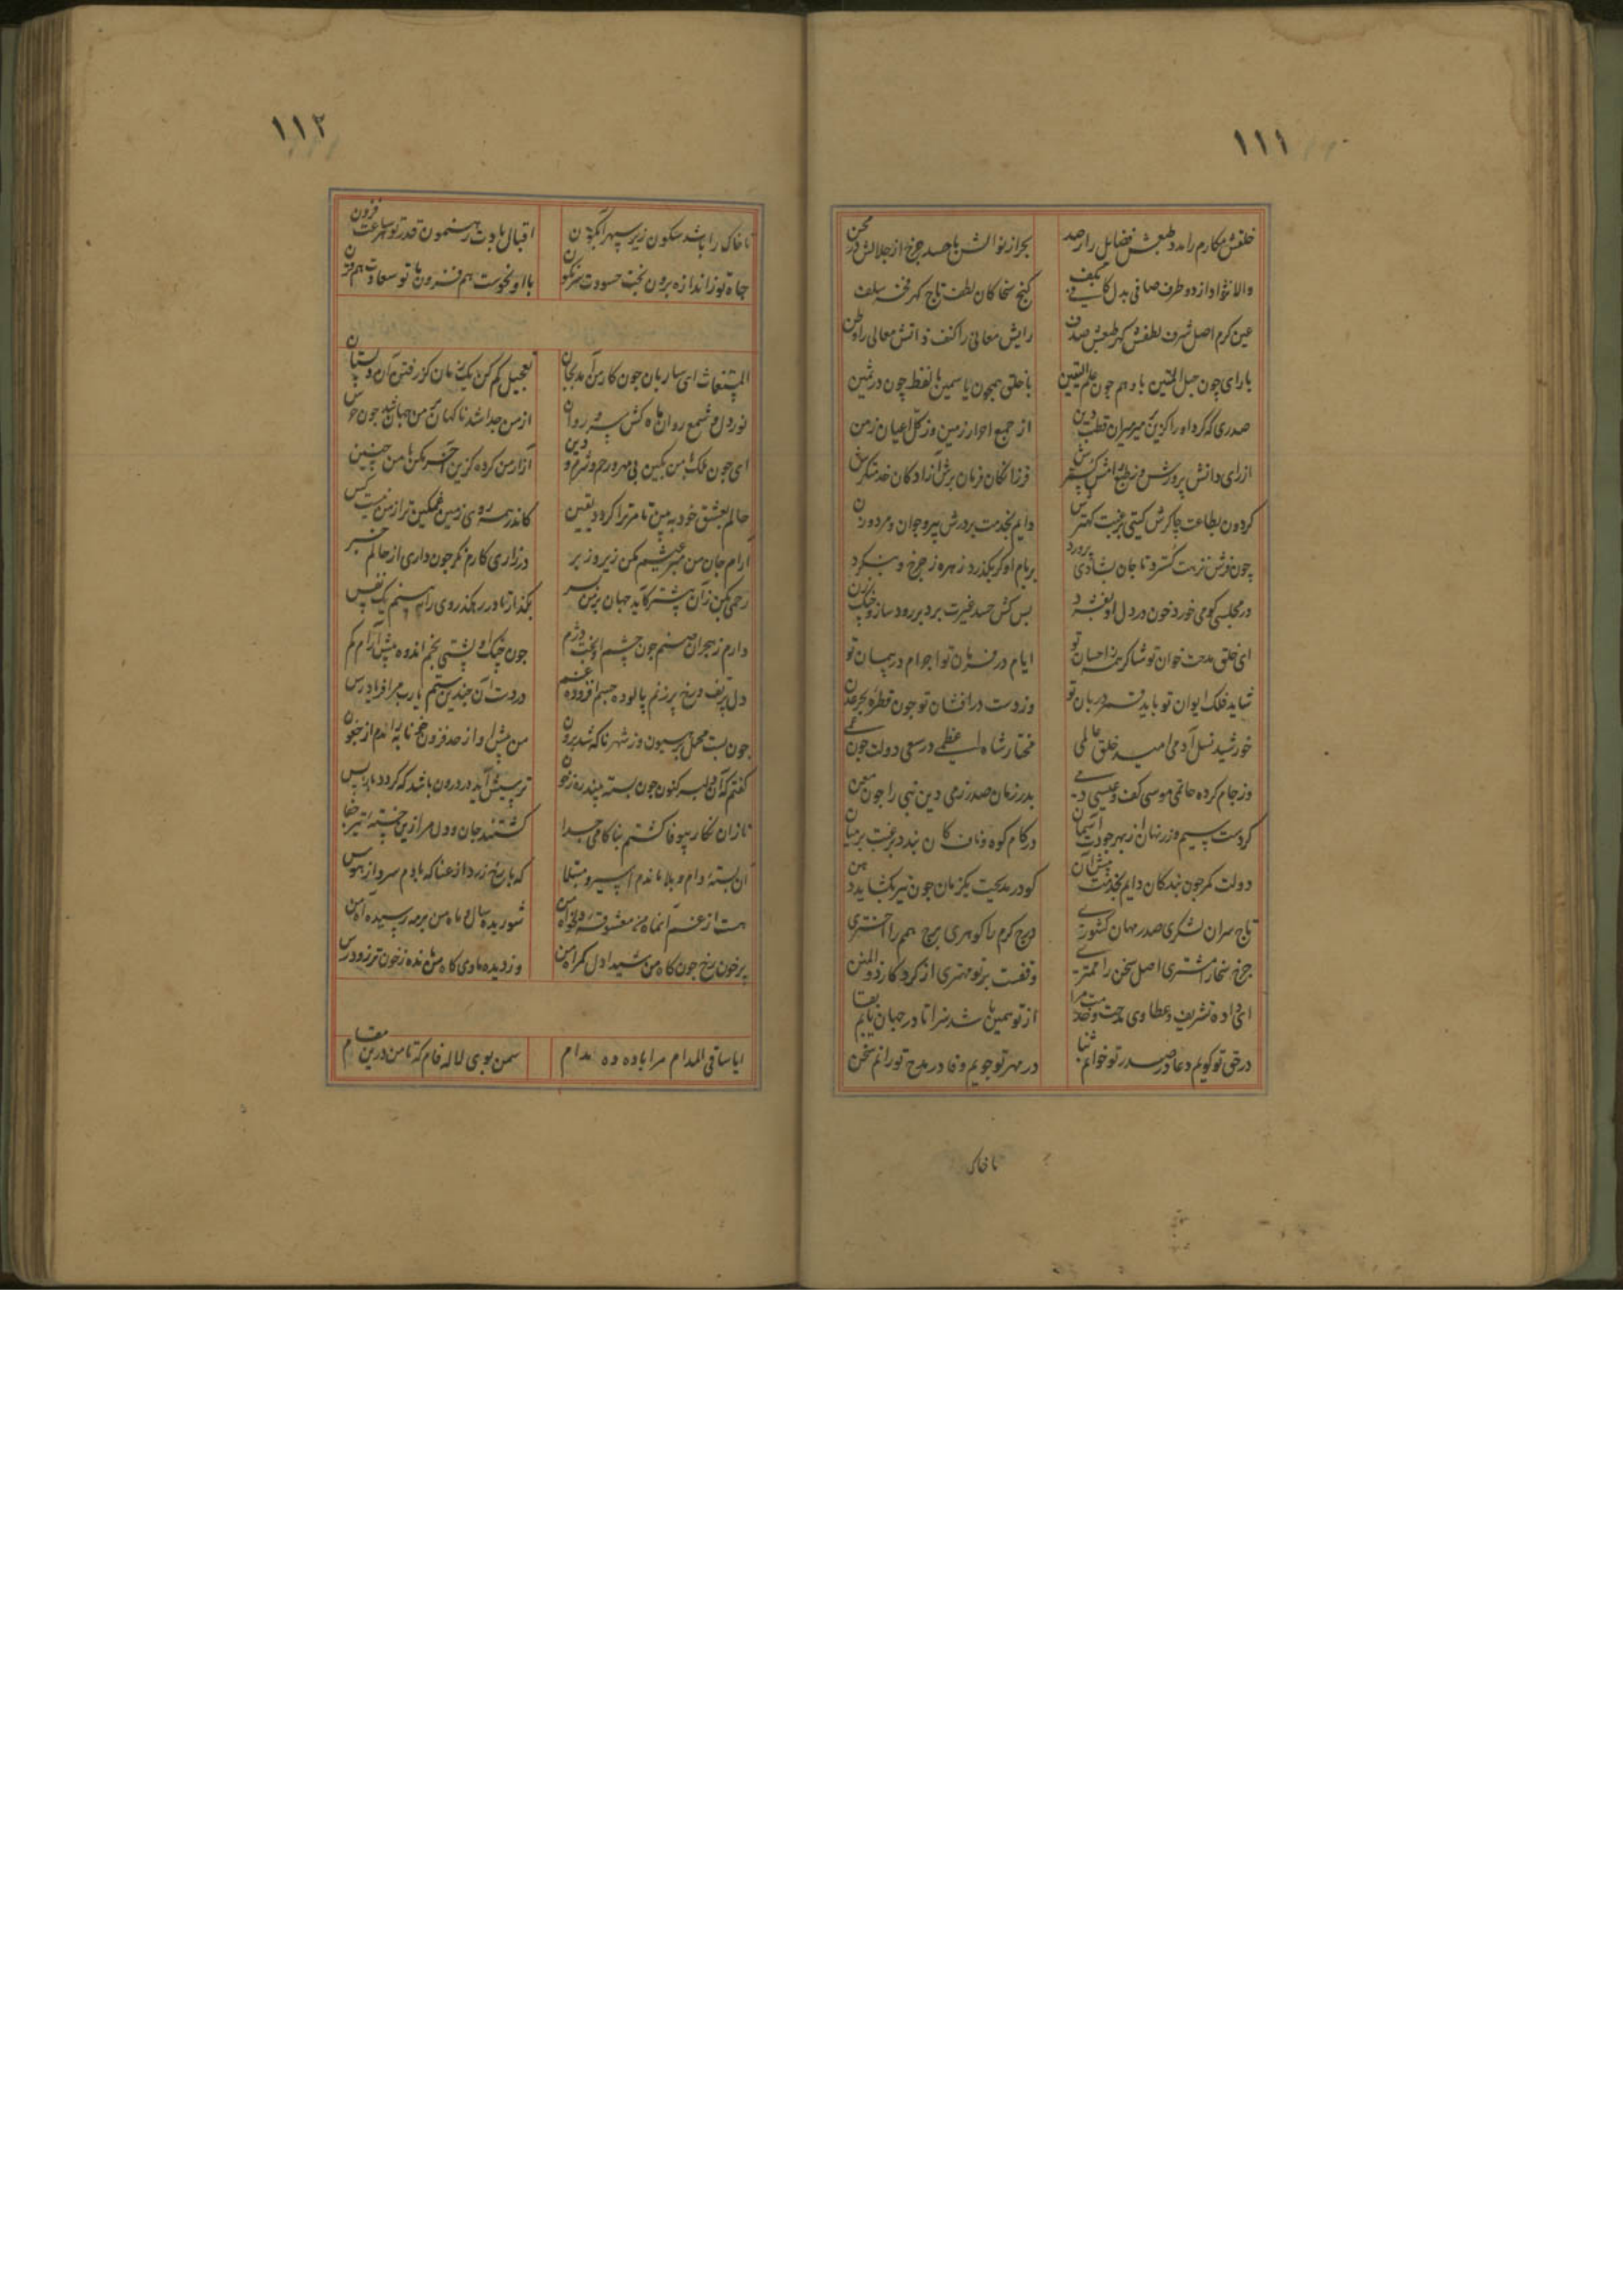 ١١١
خلقش مکارم را مدد طبعش فضایل را رصد بحر از نوالش با حسد چرخ از جلالش در محن
والا نژاد از دو طرف صافی بدل کافی بکف کنج سخا کان لطف تاج کهر فخر سلف
عین کرم اصل شرف لطفش کهر طبعش صدف رایش معانی را کنف ذاتش معالی را وطن
با رای چون حبل المتین با وهم چون علم الیقین با خلق همچون یاسمین با لفظ چون در ثمین
صدری که کرد او را کزین میر میران قطب دین از جمع احرار زمین وز کل اعیان زمن
از رای و دانش پرورش وز طبع رامش کسترش فرزانکان فرمان برش آزادکان خدمتکرش
کردون بطاعت چاکرش کیتی برغبت کهترش دایم بخدمت بر درش پیر و جوان و مرد و زن
چون فرش نزهت کسترد تا جان بشادی پرورد بر بام او کر بکذرد زهره ز چرخ و بنکرد
در مجلسی کو می خورد خون در دل او بفسرد بس کش حسد غیرت برد بر رود ساز و چنک زن
ای خلق مدحت خوان تو شاکر همه ز احسان تو ایام در فرمان تو اجرام در پیمان تو
شاید فلک ایوان تو باید قمر دربان تو وز دست در افشان تو چون قطره بحر عدن
خورشید نسل آدمی امید خلق عالمی مختار شاه اعظمی در سعی دولت چون عمی
وز جام کرده حاتمی موسی کف و عیسی دمی بدر زمان صدر زمی دین نبی را چون معن
کردست سیم و زر نهان از بهر جودت آسمان در کام کوه و ناف کان بندد برغبت بر میان
دولت کمر چون بندکان دایم بخدمت پیش آن کو در مدیحت یکزمان چون تیر بکشاید دهن
تاج سران لشکری صدر مهان کشوری درج کرم را کوهری برج همم را اختری
چرخ سخا را مشتری اصل سخن را عنصری وقفست بر تو مهتری از کردکار ذوالمنن
ای داده تشریف و عطا وی مدحت و خدمت مرا از تو همین باشد سزا تا در جهان یابم بقا
در حق تو کویم دعا در صدر تو خوانم ثنا در مهر تو جویم وفا در مدح تو رانم سخن
تا خاک
١١٢
تا خاک را باشد سکون زیر سپهر آبکون اقبال بادت رهنمون قدر تو هر ساعت فزون
جاه تو ز اندازه برون بخت حسودت سرنکون با او نحوست هم قرون با تو سعادت هم قرن
المستغاث ای ساربان چون کار من آمد بجان تعجیل کم کن یک زمان کز رفتن آن دلستان
نور دل و شمع روان ماه کش و سرو روان از من جدا شد ناکهان بر من جهان شد چون قفس
ای چون فلک با من بکین بی مهر و رحم و شرم و دین آزار من کرده کزین آخر مکن با من چنین
حالم بعشق خود ببین تا مر ترا کردد یقین کاندر همه روی زمین غمکین تر از من نیست کس
آرام جان من مبر عیشم مکن زیر و زبر در زاری کارم نکر چون داری از حالم خبر
رحمی بکن زان پیشتر کآید جهان بر من بسر بکذار تا در رهکذر روی تو بینم یک نفس
دارم ز هجران صنم چون چشم او بخت دژم چون چنک او پشتی بخم اندوه بیش آرام کم
دل پر تف و رخ پر ز نم پالوده جسم افزوده غم در دست آن چندین ستم یا رب مرا فریاد رس
چون بست محمل بر هیون وز شهر ناکه شد برون من پیش او از حد فزون خونابه راندم از جفون
کفتم که آن دلبر کنون چون بسته بیند ره ز خون ترسیش آید در درون باشد که کردد باز پس
تا زان نکار بیوفا کشتم بناکامی جدا کشتند جان و دل مرا زین خسته تیر جفا
آن بسته دام و بلا ماندم اسیر و مبتلا که با رخ زرد از عنا که با دم سرد از هوس
هست از غم آنماه من معشوقه دلخواه من شوریده سال و ماه من بر مه رسیده آه من
پر خون رخ چون کاه من شیدا دل کمراه من وز دیده مأوی کاه من مانده ز خون تر زو درس
ایا ساقی المدام مرا باده ده مدام سمن بوی لاله فام که تا من درین مقام